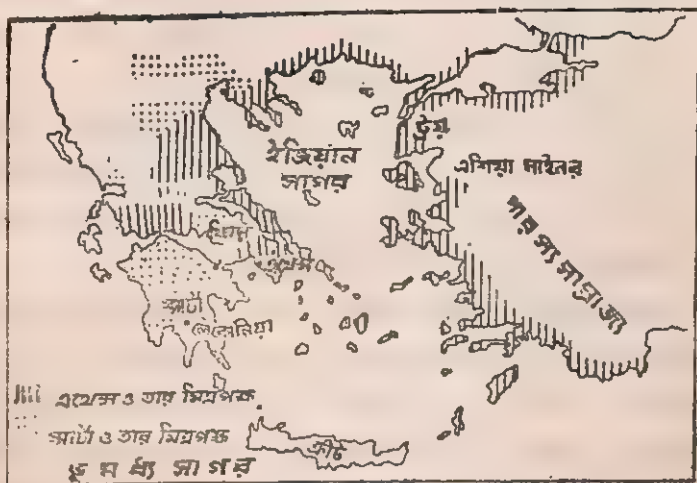 ইজিয়ান
সাগর
ট্রয়
এশিয়া মাইনর
পারস্য সাম্রাজ্য
থিবস
এথেন্স
স্পার্টা
লেকোনিয়া
এথেন্স ও তার মিত্রপক্ষ
স্পার্টা ও তার মিত্রপক্ষ
ক্রীট
ভূমধ্য সাগর